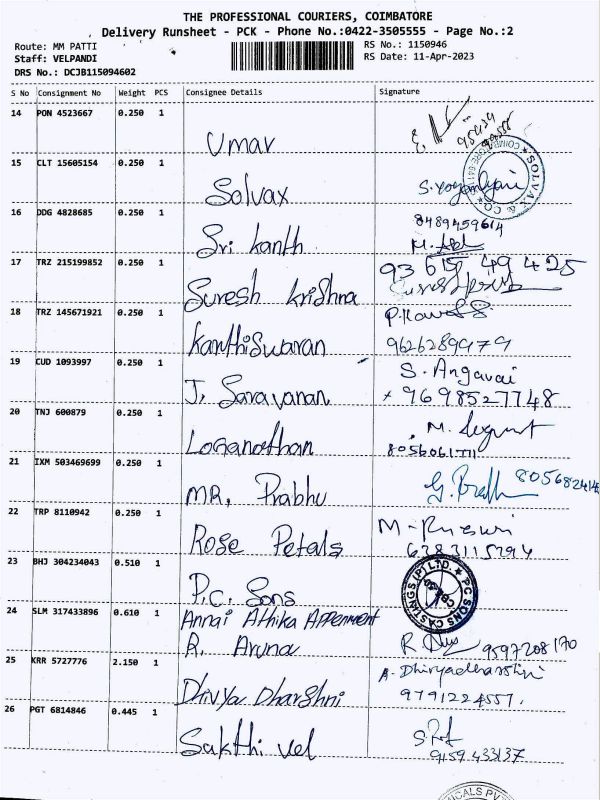 THE PROFESSIONAL COURIERS, COIMBATORE
Delivery Runsheet - PCK - Phone No.:0422-3505555 - Page No.:2
Route: MM PATTI
RS No.: 1150946
Staff: VELPANDI
RS Date: 11-Apr-2023
DRS No.: DCJB115094602
S No Consignment No Weight PCS Consignee Details Signature
14 PON 4523667 0.250 1
Umar
15 CLT 15605154 0.250 1
Solvax
SOLVAY & CO
16 DDG 4828685 0.250 1
8489459614
Sri Kanth
17 TRZ 215199852 0.250 1
93 619 49 425
Suresh Krishna
18 TRZ 145671921 0.250 1
Kanthiswaran
9626289979
19 CUD 1093997 0.250 1
S. Angavai
J. Saravanan
9698527748
20 TNJ 600879 0.250 1
Loganathan
8056061711
21 IXM 503469699 0.250 1
MR. Prabhu
22 TRP 8110942 0.250 1
Rose Petals
23 BHJ 304234043 0.510 1
P.C. Sons
PC SONS CASTINGS (P) LTD.
24 SLM 317433896 0.610 1
Annai Athika Appenment
R. Aruna
9597208170
25 KRR 5727776 2.150 1
A. Dhivyadharshini
Divya Dharshni
9791224557.
26 PGT 6814846 0.445 1
Sakthi vel
9159433137